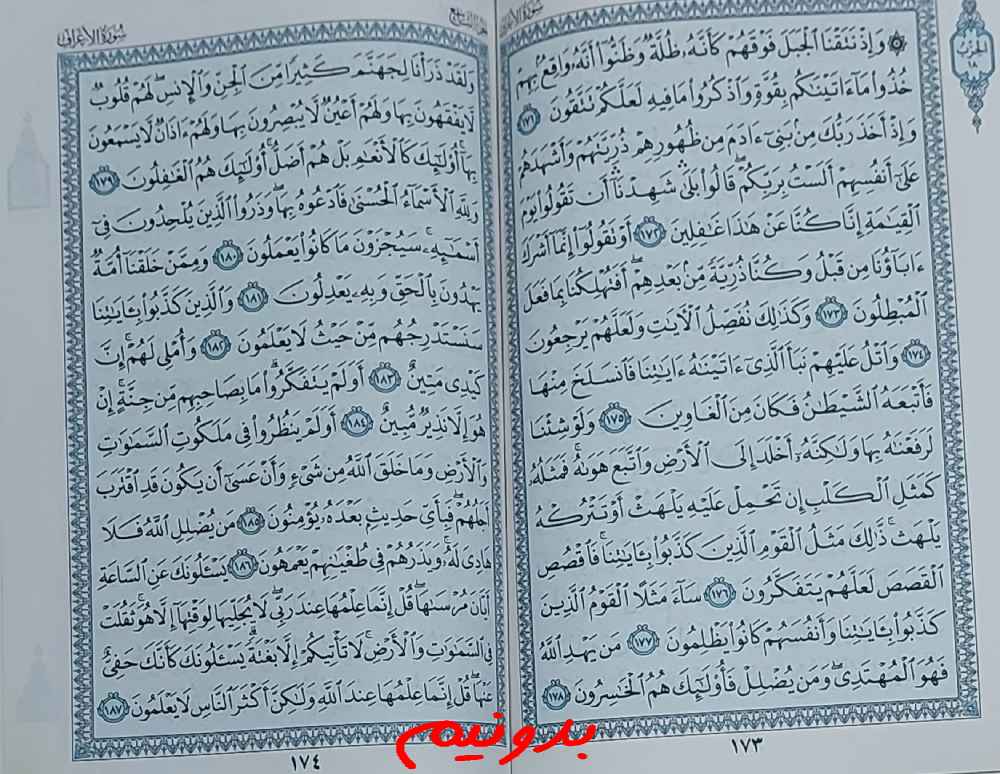 سُورَةُ الأَعْرَافِ
الحِزْبُ
١٨
۞ وَإِذْ نَتَقْنَا ٱلْجَبَلَ فَوْقَهُمْ كَأَنَّهُۥ ظُلَّةٌ وَظَنُّوٓا۟ أَنَّهُۥ وَاقِعٌۢ بِهِمْ
خُذُوا۟ مَآ ءَاتَيْنَٰكُم بِقُوَّةٍ وَٱذْكُرُوا۟ مَا فِيهِ لَعَلَّكُمْ تَتَّقُونَ ١٧١
وَإِذْ أَخَذَ رَبُّكَ مِنۢ بَنِىٓ ءَادَمَ مِن ظُهُورِهِمْ ذُرِّيَّتَهُمْ وَأَشْهَدَهُمْ
عَلَىٰٓ أَنفُسِهِمْ أَلَسْتُ بِرَبِّكُمْ ۖ قَالُوا۟ بَلَىٰ ۛ شَهِدْنَآ ۛ أَن تَقُولُوا۟ يَوْمَ
ٱلْقِيَٰمَةِ إِنَّا كُنَّا عَنْ هَٰذَا غَٰفِلِينَ ١٧٢ أَوْ تَقُولُوٓا۟ إِنَّمَآ أَشْرَكَ
ءَابَآؤُنَا مِن قَبْلُ وَكُنَّا ذُرِّيَّةً مِّنۢ بَعْدِهِمْ ۖ أَفَتُهْلِكُنَا بِمَا فَعَلَ
ٱلْمُبْطِلُونَ ١٧٣ وَكَذَٰلِكَ نُفَصِّلُ ٱلْءَايَٰتِ وَلَعَلَّهُمْ يَرْجِعُونَ
١٧٤ وَٱتْلُ عَلَيْهِمْ نَبَأَ ٱلَّذِىٓ ءَاتَيْنَٰهُ ءَايَٰتِنَا فَٱنسَلَخَ مِنْهَا
فَأَتْبَعَهُ ٱلشَّيْطَٰنُ فَكَانَ مِنَ ٱلْغَاوِينَ ١٧٥ وَلَوْ شِئْنَا
لَرَفَعْنَٰهُ بِهَا وَلَٰكِنَّهُۥٓ أَخْلَدَ إِلَى ٱلْأَرْضِ وَٱتَّبَعَ هَوَىٰهُ ۚ فَمَثَلُهُۥ
كَمَثَلِ ٱلْكَلْبِ إِن تَحْمِلْ عَلَيْهِ يَلْهَثْ أَوْ تَتْرُكْهُ
يَلْهَث ۚ ذَّٰلِكَ مَثَلُ ٱلْقَوْمِ ٱلَّذِينَ كَذَّبُوا۟ بِـَٔايَٰتِنَا ۚ فَٱقْصُصِ
ٱلْقَصَصَ لَعَلَّهُمْ يَتَفَكَّرُونَ ١٧٦ سَآءَ مَثَلًا ٱلْقَوْمُ ٱلَّذِينَ
كَذَّبُوا۟ بِـَٔايَٰتِنَا وَأَنفُسَهُمْ كَانُوا۟ يَظْلِمُونَ ١٧٧ مَن يَهْدِ ٱللَّهُ
فَهُوَ ٱلْمُهْتَدِى ۖ وَمَن يُضْلِلْ فَأُو۟لَٰٓئِكَ هُمُ ٱلْخَٰسِرُونَ ١٧٨
١٧٣
وَلَقَدْ ذَرَأْنَا لِجَهَنَّمَ كَثِيرًا مِّنَ ٱلْجِنِّ وَٱلْإِنسِ ۖ لَهُمْ قُلُوبٌ
لَّا يَفْقَهُونَ بِهَا وَلَهُمْ أَعْيُنٌ لَّا يُبْصِرُونَ بِهَا وَلَهُمْ ءَاذَانٌ لَّا يَسْمَعُونَ
بِهَآ ۚ أُو۟لَٰٓئِكَ كَٱلْأَنْعَٰمِ بَلْ هُمْ أَضَلُّ ۚ أُو۟لَٰٓئِكَ هُمُ ٱلْغَٰفِلُونَ ١٧٩
وَلِلَّهِ ٱلْأَسْمَآءُ ٱلْحُسْنَىٰ فَٱدْعُوهُ بِهَا ۖ وَذَرُوا۟ ٱلَّذِينَ يُلْحِدُونَ فِىٓ
أَسْمَٰٓئِهِۦ ۚ سَيُجْزَوْنَ مَا كَانُوا۟ يَعْمَلُونَ ١٨٠ وَمِمَّنْ خَلَقْنَآ أُمَّةٌ
يَهْدُونَ بِٱلْحَقِّ وَبِهِۦ يَعْدِلُونَ ١٨١ وَٱلَّذِينَ كَذَّبُوا۟ بِـَٔايَٰتِنَا
سَنَسْتَدْرِجُهُم مِّنْ حَيْثُ لَا يَعْلَمُونَ ١٨٢ وَأُمْلِى لَهُمْ ۚ إِنَّ
كَيْدِى مَتِينٌ ١٨٣ أَوَلَمْ يَتَفَكَّرُوا۟ ۗ مَا بِصَاحِبِهِم مِّن جِنَّةٍ ۚ إِنْ
هُوَ إِلَّا نَذِيرٌ مُّبِينٌ ١٨٤ أَوَلَمْ يَنظُرُوا۟ فِى مَلَكُوتِ ٱلسَّمَٰوَٰتِ
وَٱلْأَرْضِ وَمَا خَلَقَ ٱللَّهُ مِن شَىْءٍ وَأَنْ عَسَىٰٓ أَن يَكُونَ قَدِ ٱقْتَرَبَ
أَجَلُهُمْ ۖ فَبِأَىِّ حَدِيثٍۭ بَعْدَهُۥ يُؤْمِنُونَ ١٨٥ مَن يُضْلِلِ ٱللَّهُ فَلَا
هَادِىَ لَهُۥ ۚ وَيَذَرُهُمْ فِى طُغْيَٰنِهِمْ يَعْمَهُونَ ١٨٦ يَسْـَٔلُونَكَ عَنِ ٱلسَّاعَةِ
أَيَّانَ مُرْسَىٰهَا ۖ قُلْ إِنَّمَا عِلْمُهَا عِندَ رَبِّى ۖ لَا يُجَلِّيهَا لِوَقْتِهَآ إِلَّا هُوَ ۚ ثَقُلَتْ
فِى ٱلسَّمَٰوَٰتِ وَٱلْأَرْضِ ۚ لَا تَأْتِيكُمْ إِلَّا بَغْتَةً ۗ يَسْـَٔلُونَكَ كَأَنَّكَ حَفِىٌّ
عَنْهَا ۖ قُلْ إِنَّمَا عِلْمُهَا عِندَ ٱللَّهِ وَلَٰكِنَّ أَكْثَرَ ٱلنَّاسِ لَا يَعْلَمُونَ ١٨٧
١٧٤
بدونیم